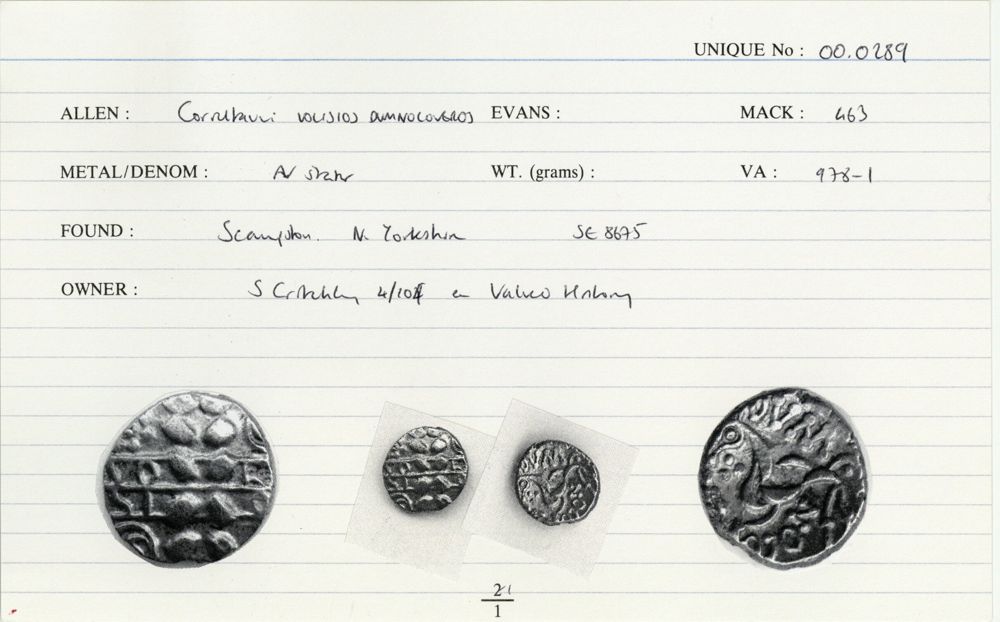 UNIQUE No : 00.0289
ALLEN : Corieltauvi VOLISIOS DUMNOCOVEROS EVANS : MACK : 463
METAL/DENOM : AV stater WT. (grams) : VA : 978-1
FOUND : Scampston. N. Yorkshire SE 8675
OWNER : S Critchley 4/10 Valued History
21
1